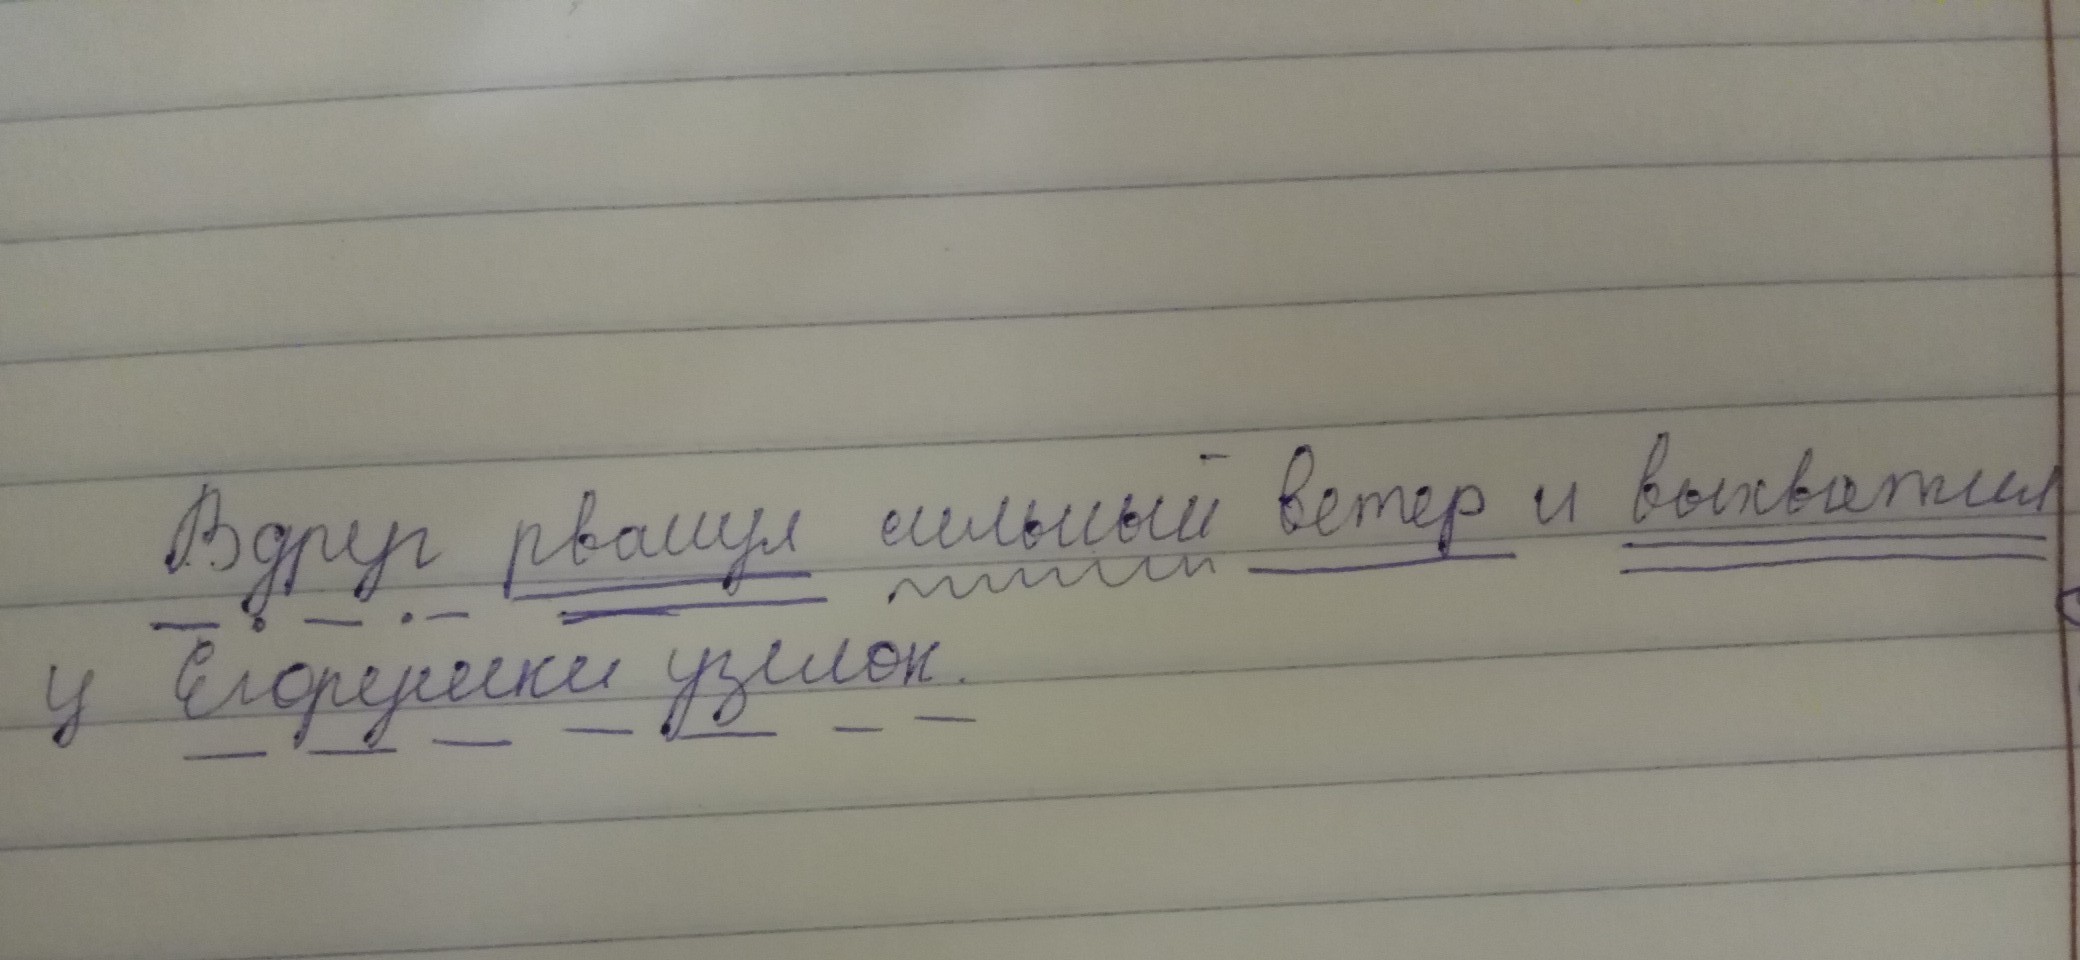 Вдруг рванул сильный ветер и выхватил
у Егорушки узелок.